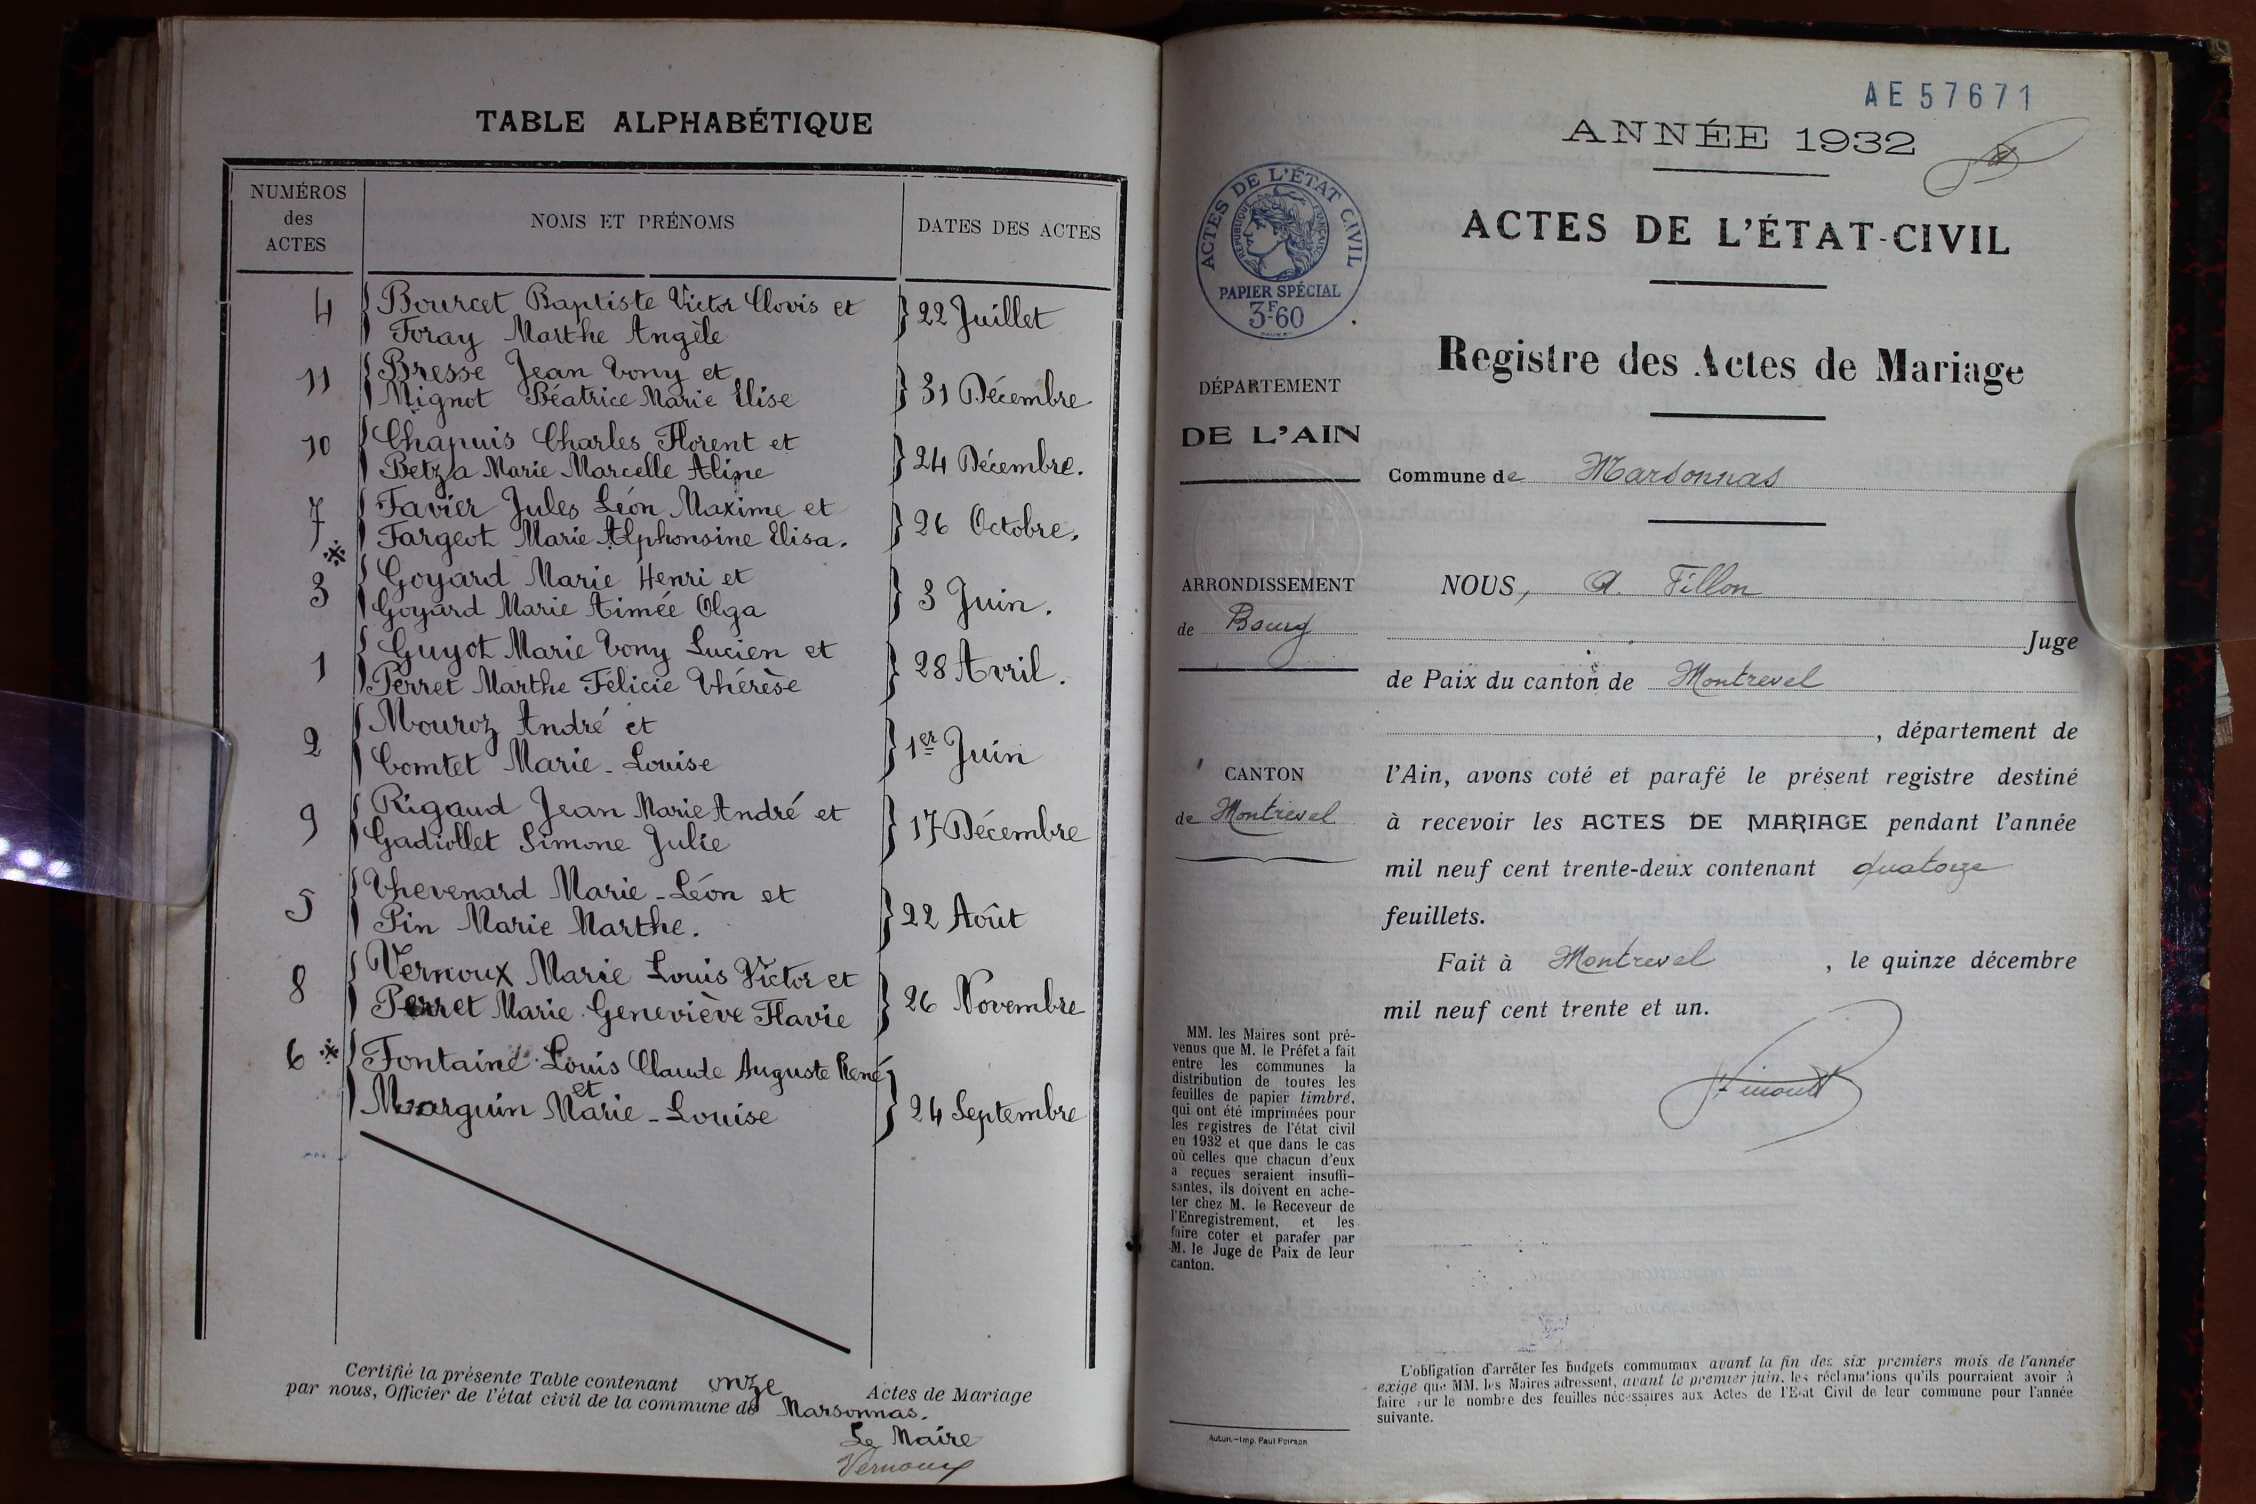 TABLE ALPHABÉTIQUE
NUMÉROS
des
ACTES
NOMS ET PRÉNOMS
DATES DES ACTES
4 Bourcet Baptiste Victor Clovis et
Foray Marthe Angèle
22 Juillet
11 Bresse Jean Tony et
Mignot Béatrice Marie Elise
31 Décembre
10 Chapuis Charles Florent et
Betza Marie Marcelle Aline
24 Décembre.
7 Favier Jules Léon Maxime et
Fargeot Marie Alphonsine Elisa.
26 Octobre.
3 Goyard Marie Henri et
Goyard Marie Aimée Olga
3 Juin.
1 Guyot Marie Tony Lucien et
Perret Marthe Félicie Thérèse
28 Avril.
2 Mouroz André et
Comtet Marie-Louise
1er Juin
9 Rigaud Jean Marie André et
Gadiollet Simone Julie
17 Décembre
5 Thevenard Marie-Léon et
Pin Marie Marthe.
22 Août
8 Vernoux Marie Louis Victor et
Perret Marie Geneviève Flavie
26 Novembre
6 Fontaine Louis Claude Auguste René
et
Marguin Marie-Louise
24 Septembre
Certifié la présente Table contenant onze Actes de Mariage
par nous, Officier de l'état civil de la commune de Marsonnas.
Le Maire
Vernoux
AE 57671
ANNÉE 1932
ACTES DE L'ÉTAT CIVIL
RÉPUBLIQUE FRANÇAISE
PAPIER SPÉCIAL
3F60
ACTES DE L'ÉTAT-CIVIL
Registre des Actes de Mariage
DÉPARTEMENT
DE L'AIN
Commune de Marsonnas
ARRONDISSEMENT
de Bourg
NOUS, A. Fillon
Juge
de Paix du canton de Montrevel
, département de
CANTON
de Montrevel
l'Ain, avons coté et parafé le présent registre destiné
à recevoir les ACTES DE MARIAGE pendant l'année
mil neuf cent trente-deux contenant quatorze
feuillets.
Fait à Montrevel, le quinze décembre
mil neuf cent trente et un.
MM. les Maires sont pré-
venus que M. le Préfet a fait
entre les communes la
distribution de toutes les
feuilles de papier timbré,
qui ont été imprimées pour
les registres de l'état civil
en 1932 et que dans le cas
où celles que chacun d'eux
a reçues seraient insuffi-
santes, ils doivent en ache-
ter chez M. le Receveur de
l'Enregistrement, et les
faire coter et parafer par
M. le Juge de Paix de leur
canton.
L'obligation d'arrêter les budgets communaux avant la fin des six premiers mois de l'année
exige que MM. les Maires adressent, avant le premier juin, les réclamations qu'ils pourraient avoir à
faire sur le nombre des feuilles nécessaires aux Actes de l'Etat Civil de leur commune pour l'année
suivante.
Autun.—Imp. Paul Poirson